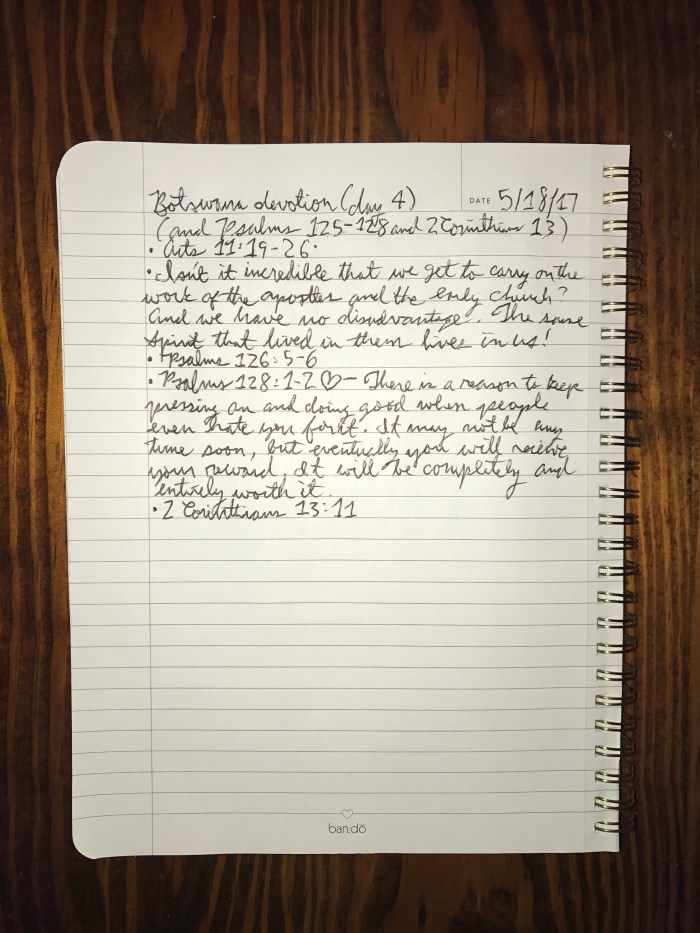 Botswana devotion (day 4)
DATE 5/18/17
(and Psalms 125-128 and 2 Corinthians 13)
• Acts 11:19-26.
• Isn't it incredible that we get to carry on the
work of the apostles and the early church?
And we have no disadvantage. The same
Spirit that lived in them lives in us!
• Psalms 126:5-6
• Psalms 128:1-2 ♡ - There is a reason to keep
pressing on and doing good when people
even hate you for it. It may not be any
time soon, but eventually you will receive
your reward. It will be completely and
entirely worth it.
• 2 Corinthians 13:11
ban.dō